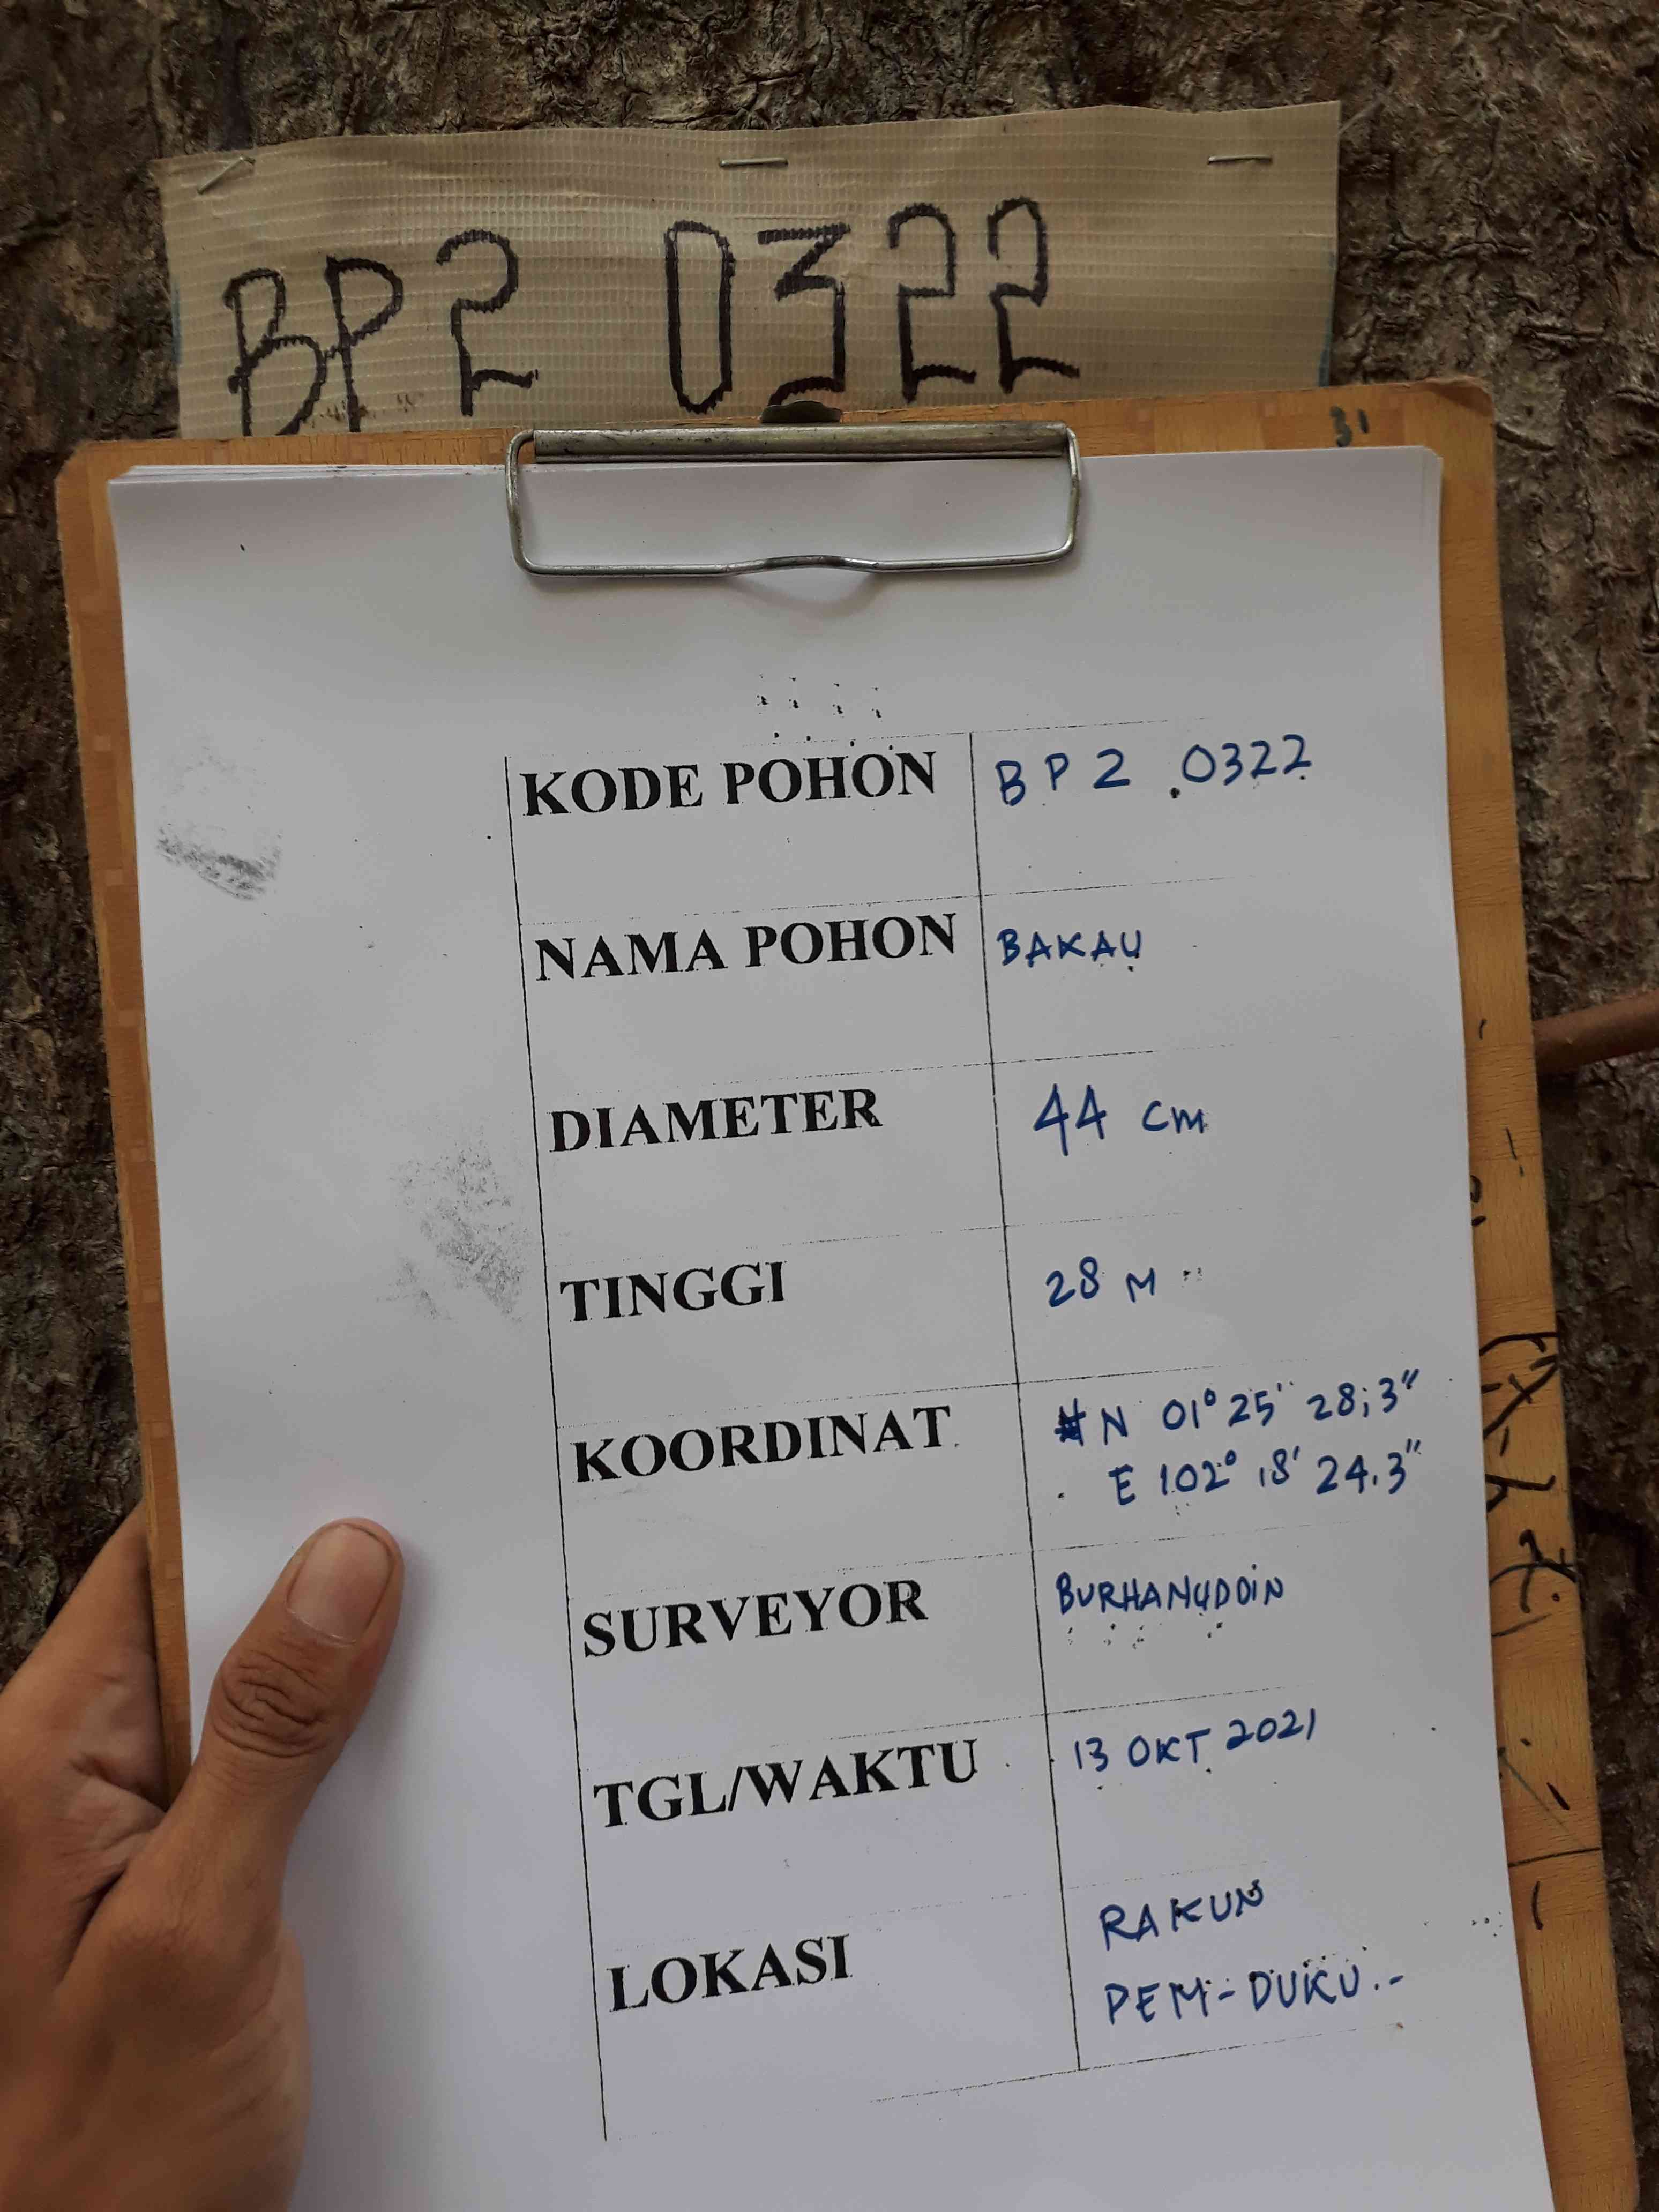 BP2 0322
31
KODE POHON BP2 0322
NAMA POHON BAKAU
DIAMETER 44 cm
TINGGI 28 M
KOORDINAT N 01° 25' 28,3"
E 102° 18' 24.3"
SURVEYOR BURHANUDDIN
TGL/WAKTU 13 OKT 2021
LOKASI RAKUN
PEM-DUKU.-